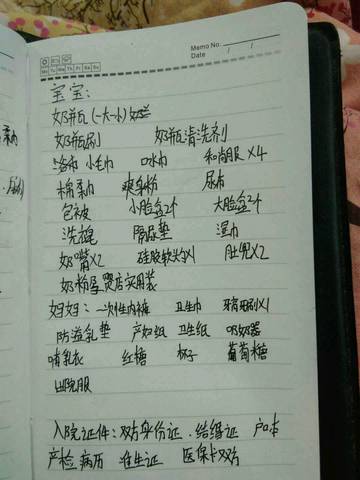 Memo No.
Date / /
Mo Tu We Th Fr Sa Su
宝宝:
奶瓶(一大一小)奶
奶瓶刷 奶瓶清洗剂
洛布 小毛巾 口水巾 和尚服×4
棉柔巾 爽身粉 尿布
包被 小脸盆2个 大脸盆2个
洗屁 隔尿垫 湿巾
奶嘴×2 硅胶软勺×1 肚兜×2
奶粉 孕婴店实用装
妈妈: 一次性内裤 卫生巾 牙刷×1
防溢乳垫 产妇纸 卫生纸 吸奶器
哺乳衣 红糖 杯子 葡萄糖
出院服
入院证件:双方身份证.结婚证 户口本
产检病历 准生证 医保卡双方